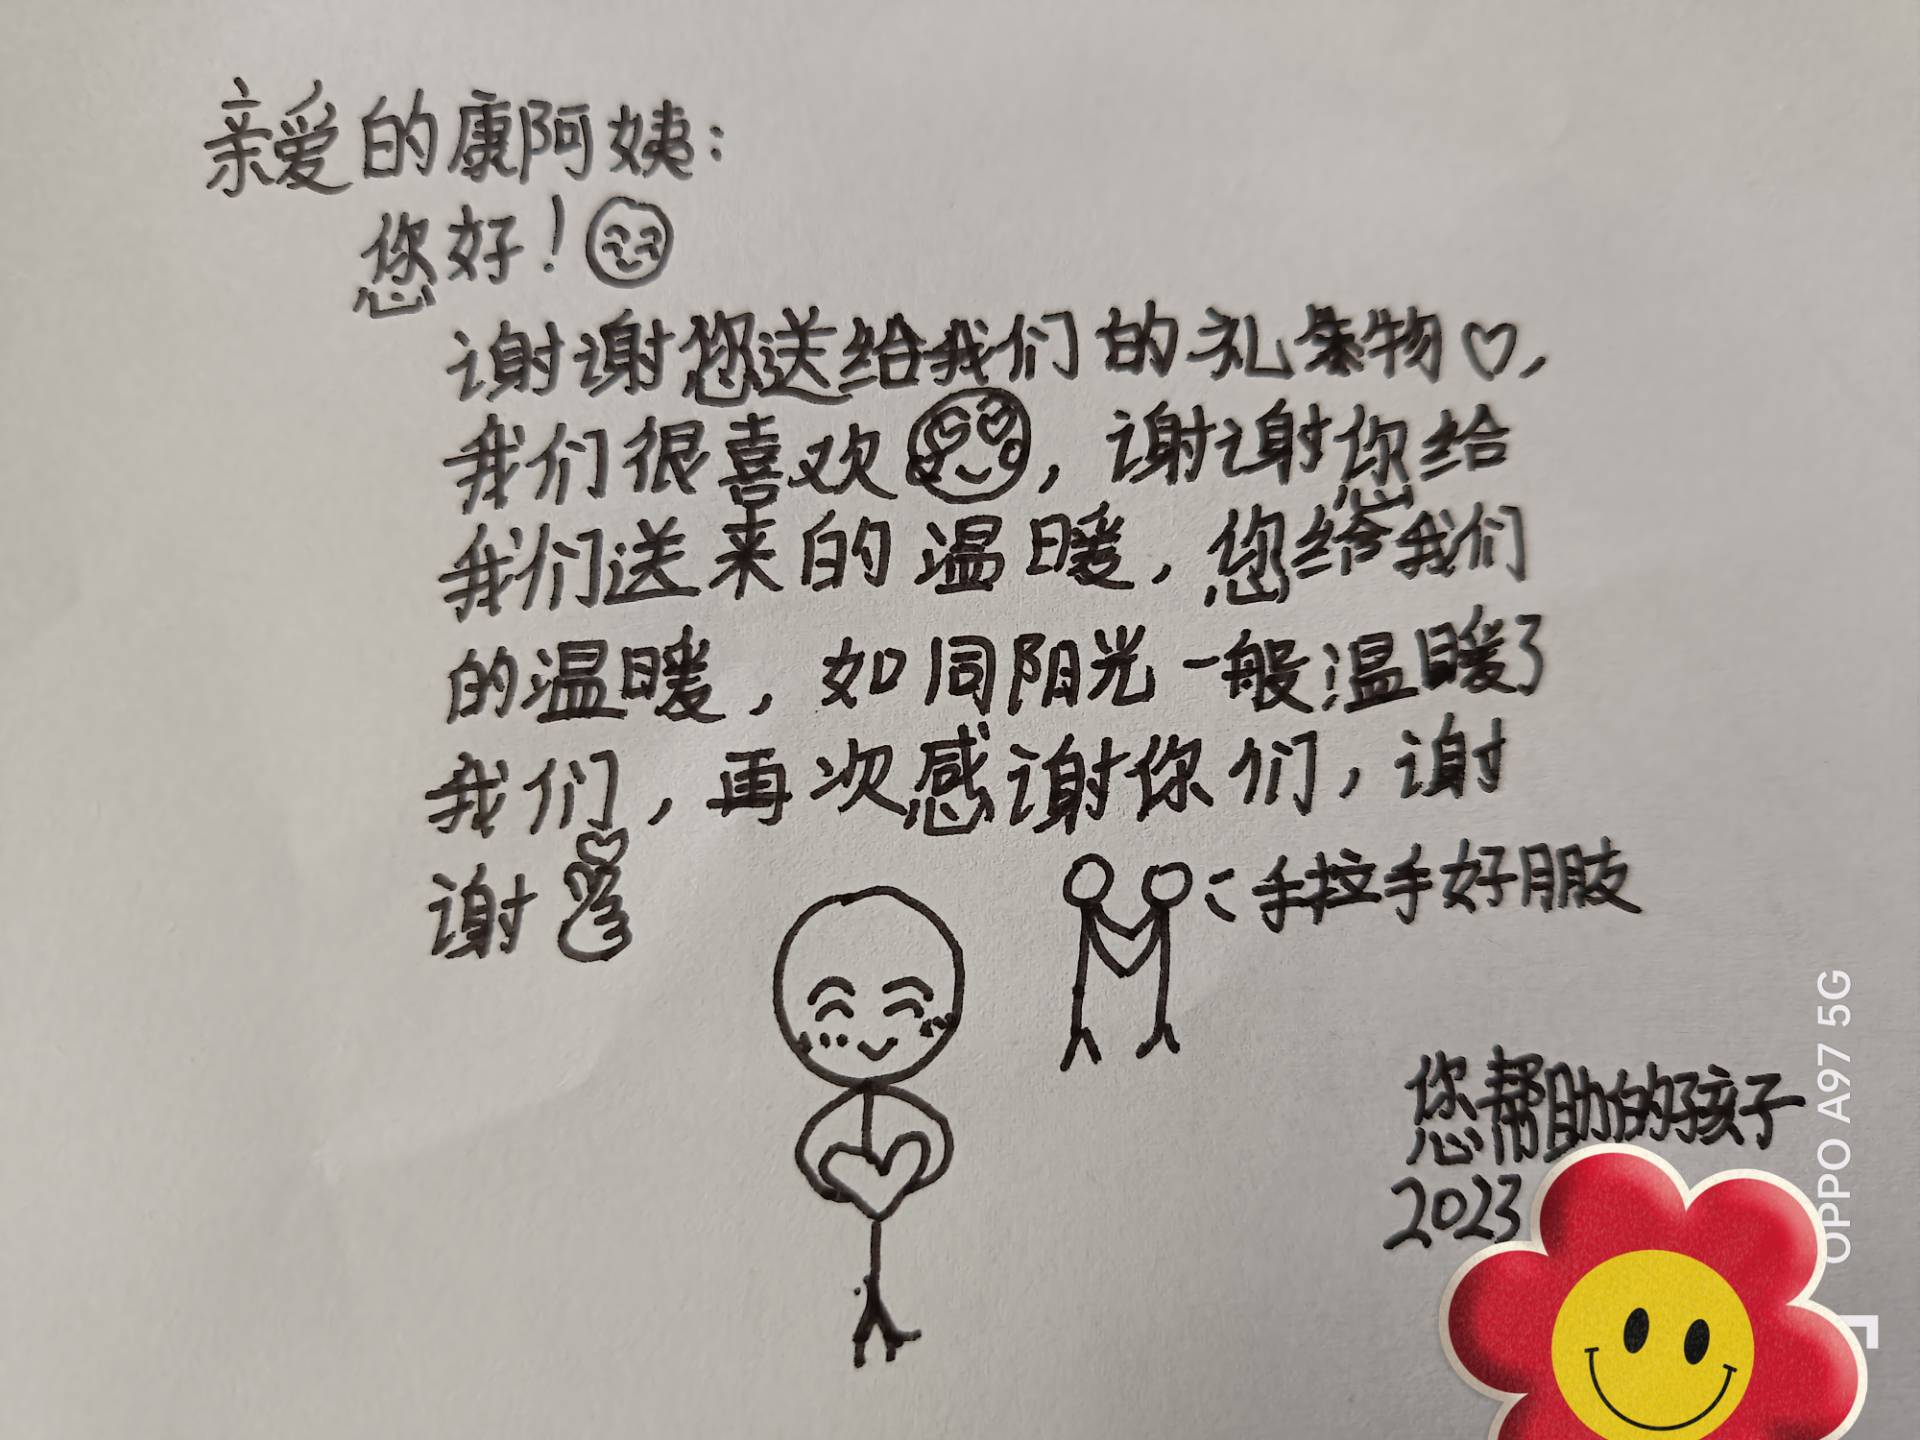 亲爱的康阿姨:
您好!
谢谢您送给我们的礼物♡,
我们很喜欢,谢谢您给
我们送来的温暖,您给我们
的温暖,如同阳光一般温暖了
我们,再次感谢你们,谢
谢
:手拉手好朋友
您帮助的孩子
2023
OPPO A97 5G